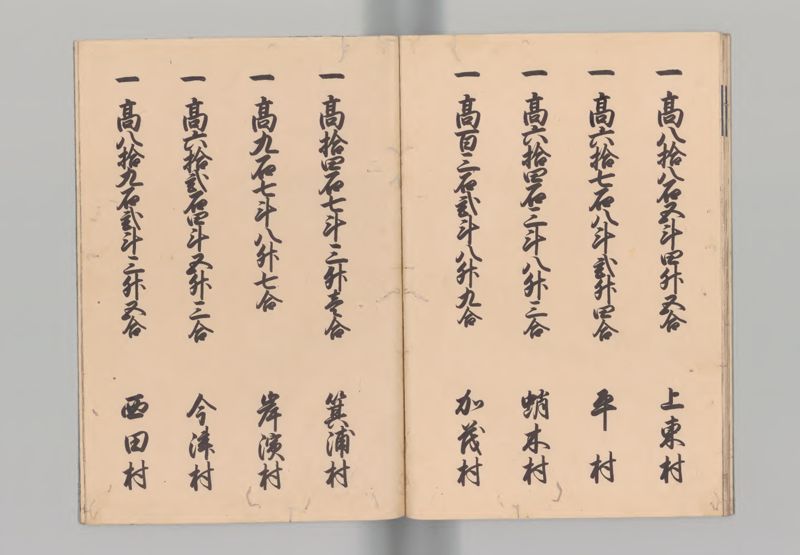 一高八拾八石五斗四升五合 上東村
一高六拾七石八斗弐升四合 平村
一高六拾四石三斗八升三合 蛸木村
一高百三石弐斗八升九合 加茂村
一高拾四石七斗三升壱合 箕浦村
一高九石七斗八升七合 岸濱村
一高六拾弐石四斗五升三合 今津村
一高八拾九石弐斗三升五合 西田村